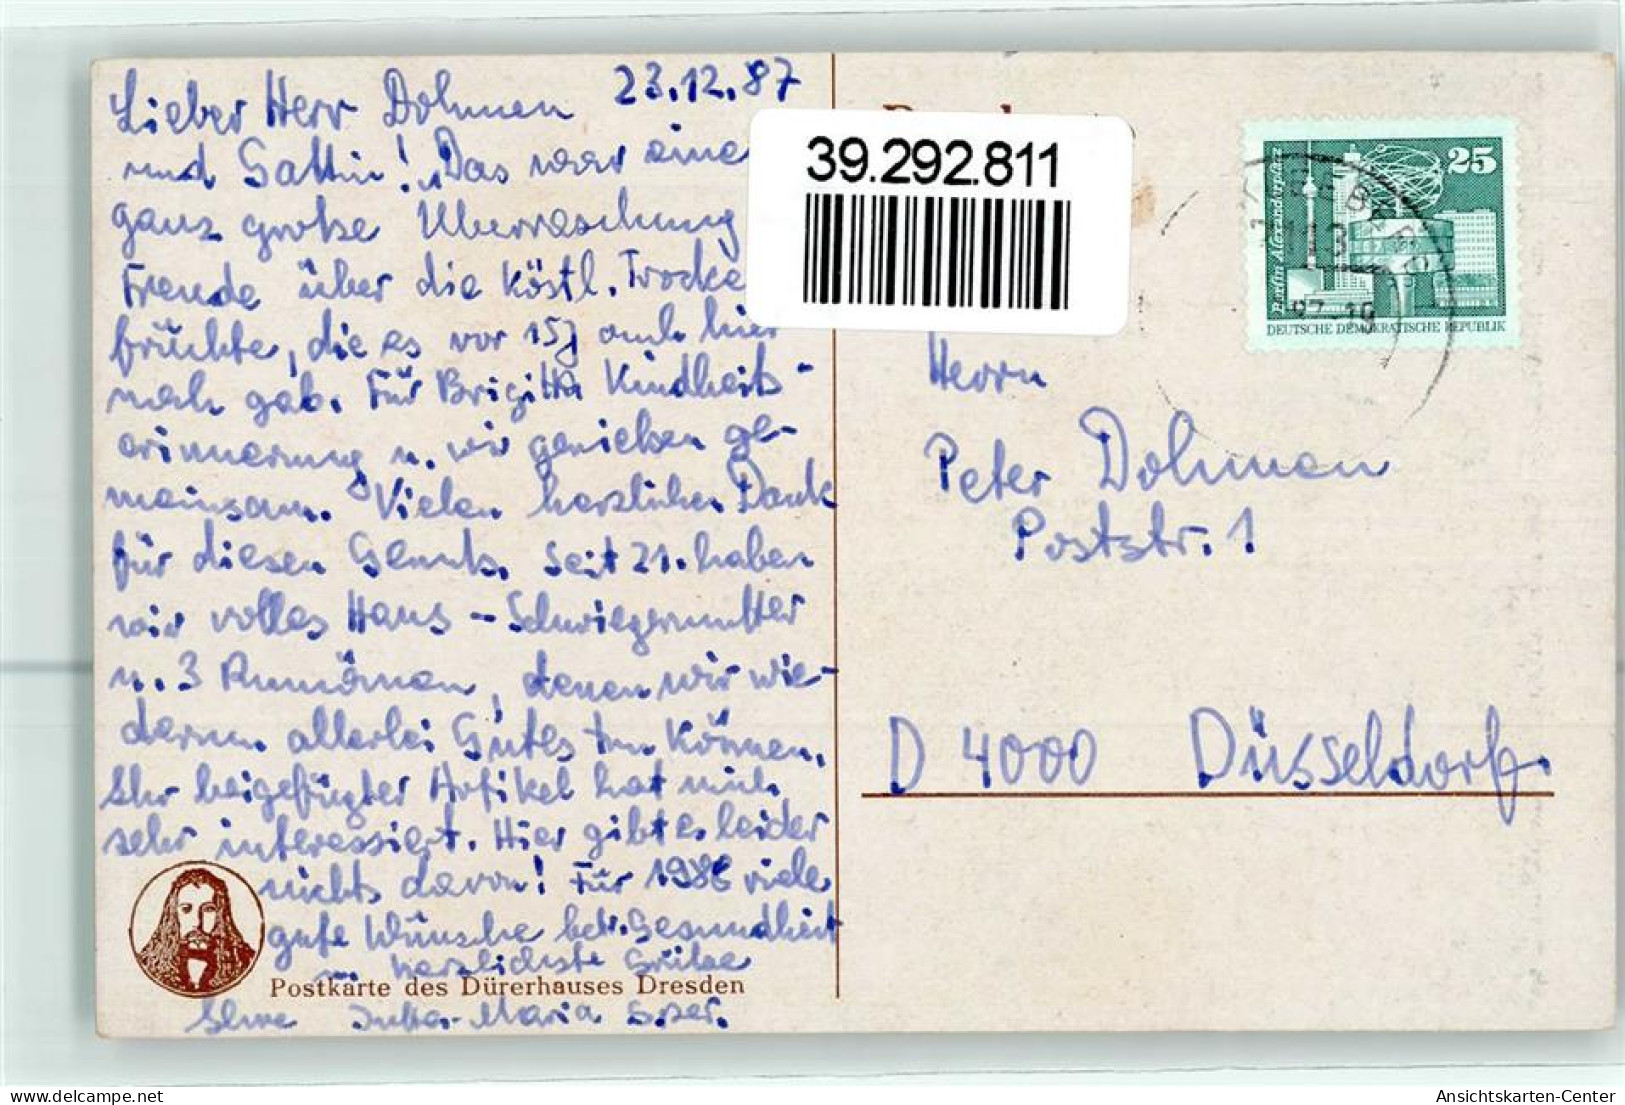 23.12.87
Lieber Herr Dohmen
und Gattin! Das war eine
ganz große Überraschung
Freude über die köstl. Trocke
früchte, die es vor 15J auch hier
noch gab. Für Brigitta Kindheits-
erinnerung u. wir genießen ge-
meinsam. Vielen herzlichen Dank
für diesen Genuß. Seit 21. haben
wir volles Haus - Schwiegermutter
u. 3 Rumänen, denen wir wie-
derum allerlei Gutes tun können.
Ihr beigefügter Artikel hat mich
sehr interessiert. Hier gibt es leider
nichts davon! Für 1988 viele
gute Wünsche betr. Gesundheit
u. herzlichste Grüße
Postkarte des Dürerhauses Dresden
Ihre Jutta-Maria
39.292.811
25
Berlin Alexanderplatz
DEUTSCHE DEMOKRATISCHE REPUBLIK
Herrn
Peter Dohmen
Poststr. 1
D 4000 Düsseldorf.
delcampe.net
Ansichtskarten-Center